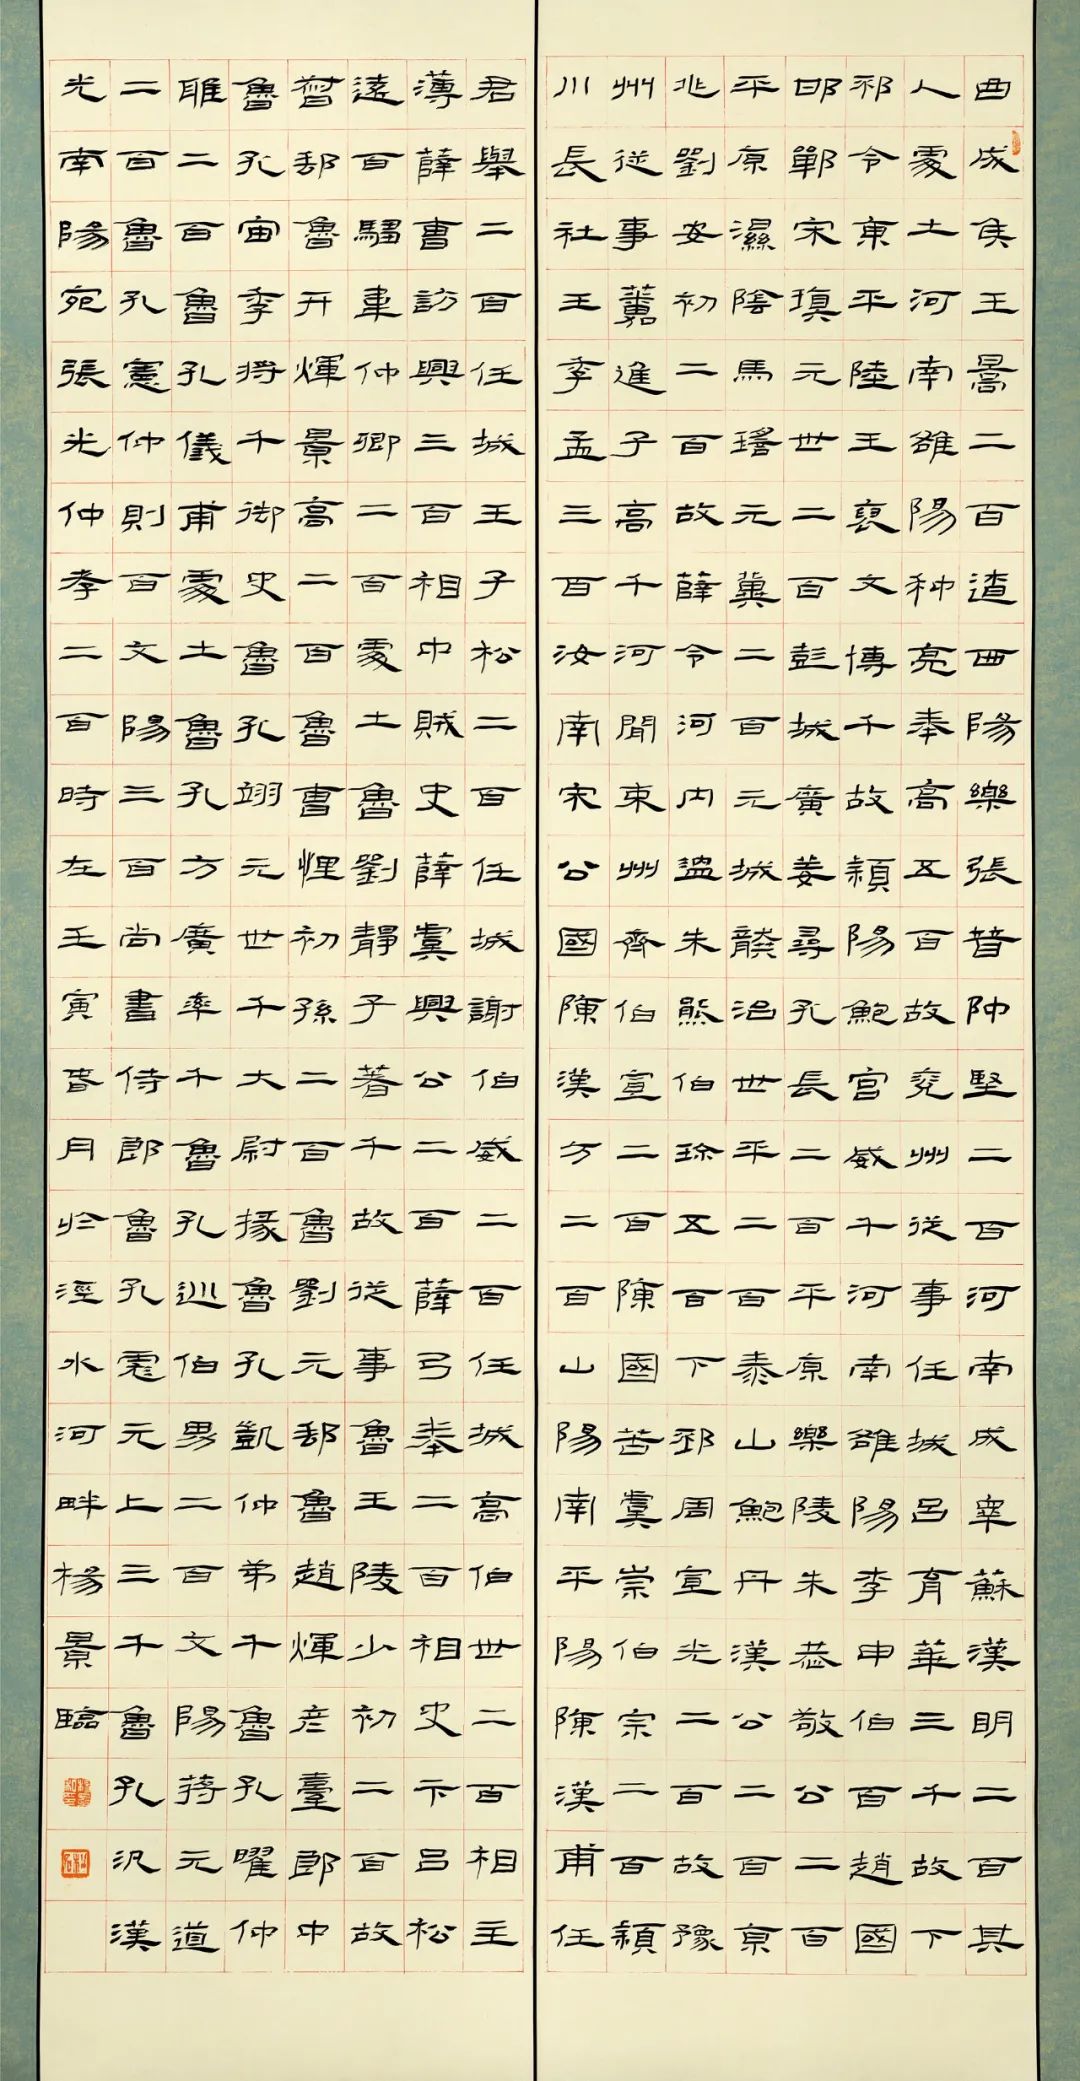 曲成侯王暠二百遼西陽樂張普仲堅二百河南成睪蘇漢明二百其
人處土河南雒陽种亮奉高五百故兗州從事任城呂育華三千故下
邳令東平陸王褒文博千故潁陽鮑宮威千河南雒陽李申伯百趙國
邯鄲宋瑱元世二百彭城廣姜尋孔長二百平原樂陵朱恭敬公二百
平原濕陰馬瑤元冀二百元城龔治世平二百泰山鮑丹漢公二百京
兆劉安初二百故薛令河內溫朱熊伯珍五百下邳周宣光二百故豫
州從事蕃進子高千河間束州齊伯宣二百陳國苦虞崇伯宗二百潁
川長社王季孟三百汝南宋公國陳漢方二百山陽南平陽陳漢甫任
君舉二百任城王子松二百任城謝伯威二百任城高伯世二百相主
薄薛曹訪興三百相中賊史薛虞興公二百薛弓奉二百相史卞呂松
遠百騶韋仲卿二百處土魯劉靜子著千故從事魯王陵少初二百故
督郵魯开煇景高二百魯曹悝初孫二百魯劉元郵魯趙煇彥臺郎中
魯孔宙季將千御史魯孔翊元世千大尉掾魯孔凱仲弟千魯孔曜仲
雅二百魯孔儀甫處土魯孔方廣率千魯孔巡伯男二百文陽蔣元道
二百魯孔憲仲則百文陽三百尚書侍郎魯孔彪元上三千魯孔汎漢
光南陽宛張光仲孝二百時在壬寅春月於涇水河畔楊景臨